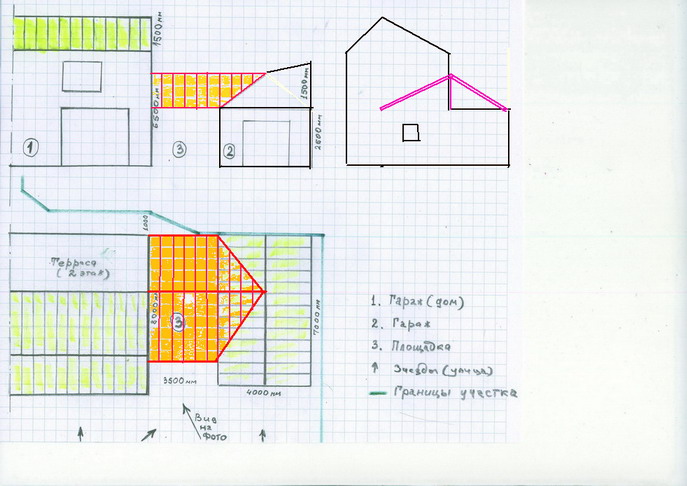 1500мм
6500мм
1500мм
2600мм
1
3
2
1000
Терраса
(2 этаж)
8000мм
3
7000 мм
3500мм
4000 мм
Вид
на
фото
1. Гараж (дом)
2. Гараж
3. Площадка
↑ Заезды (улица)
— Границы участка